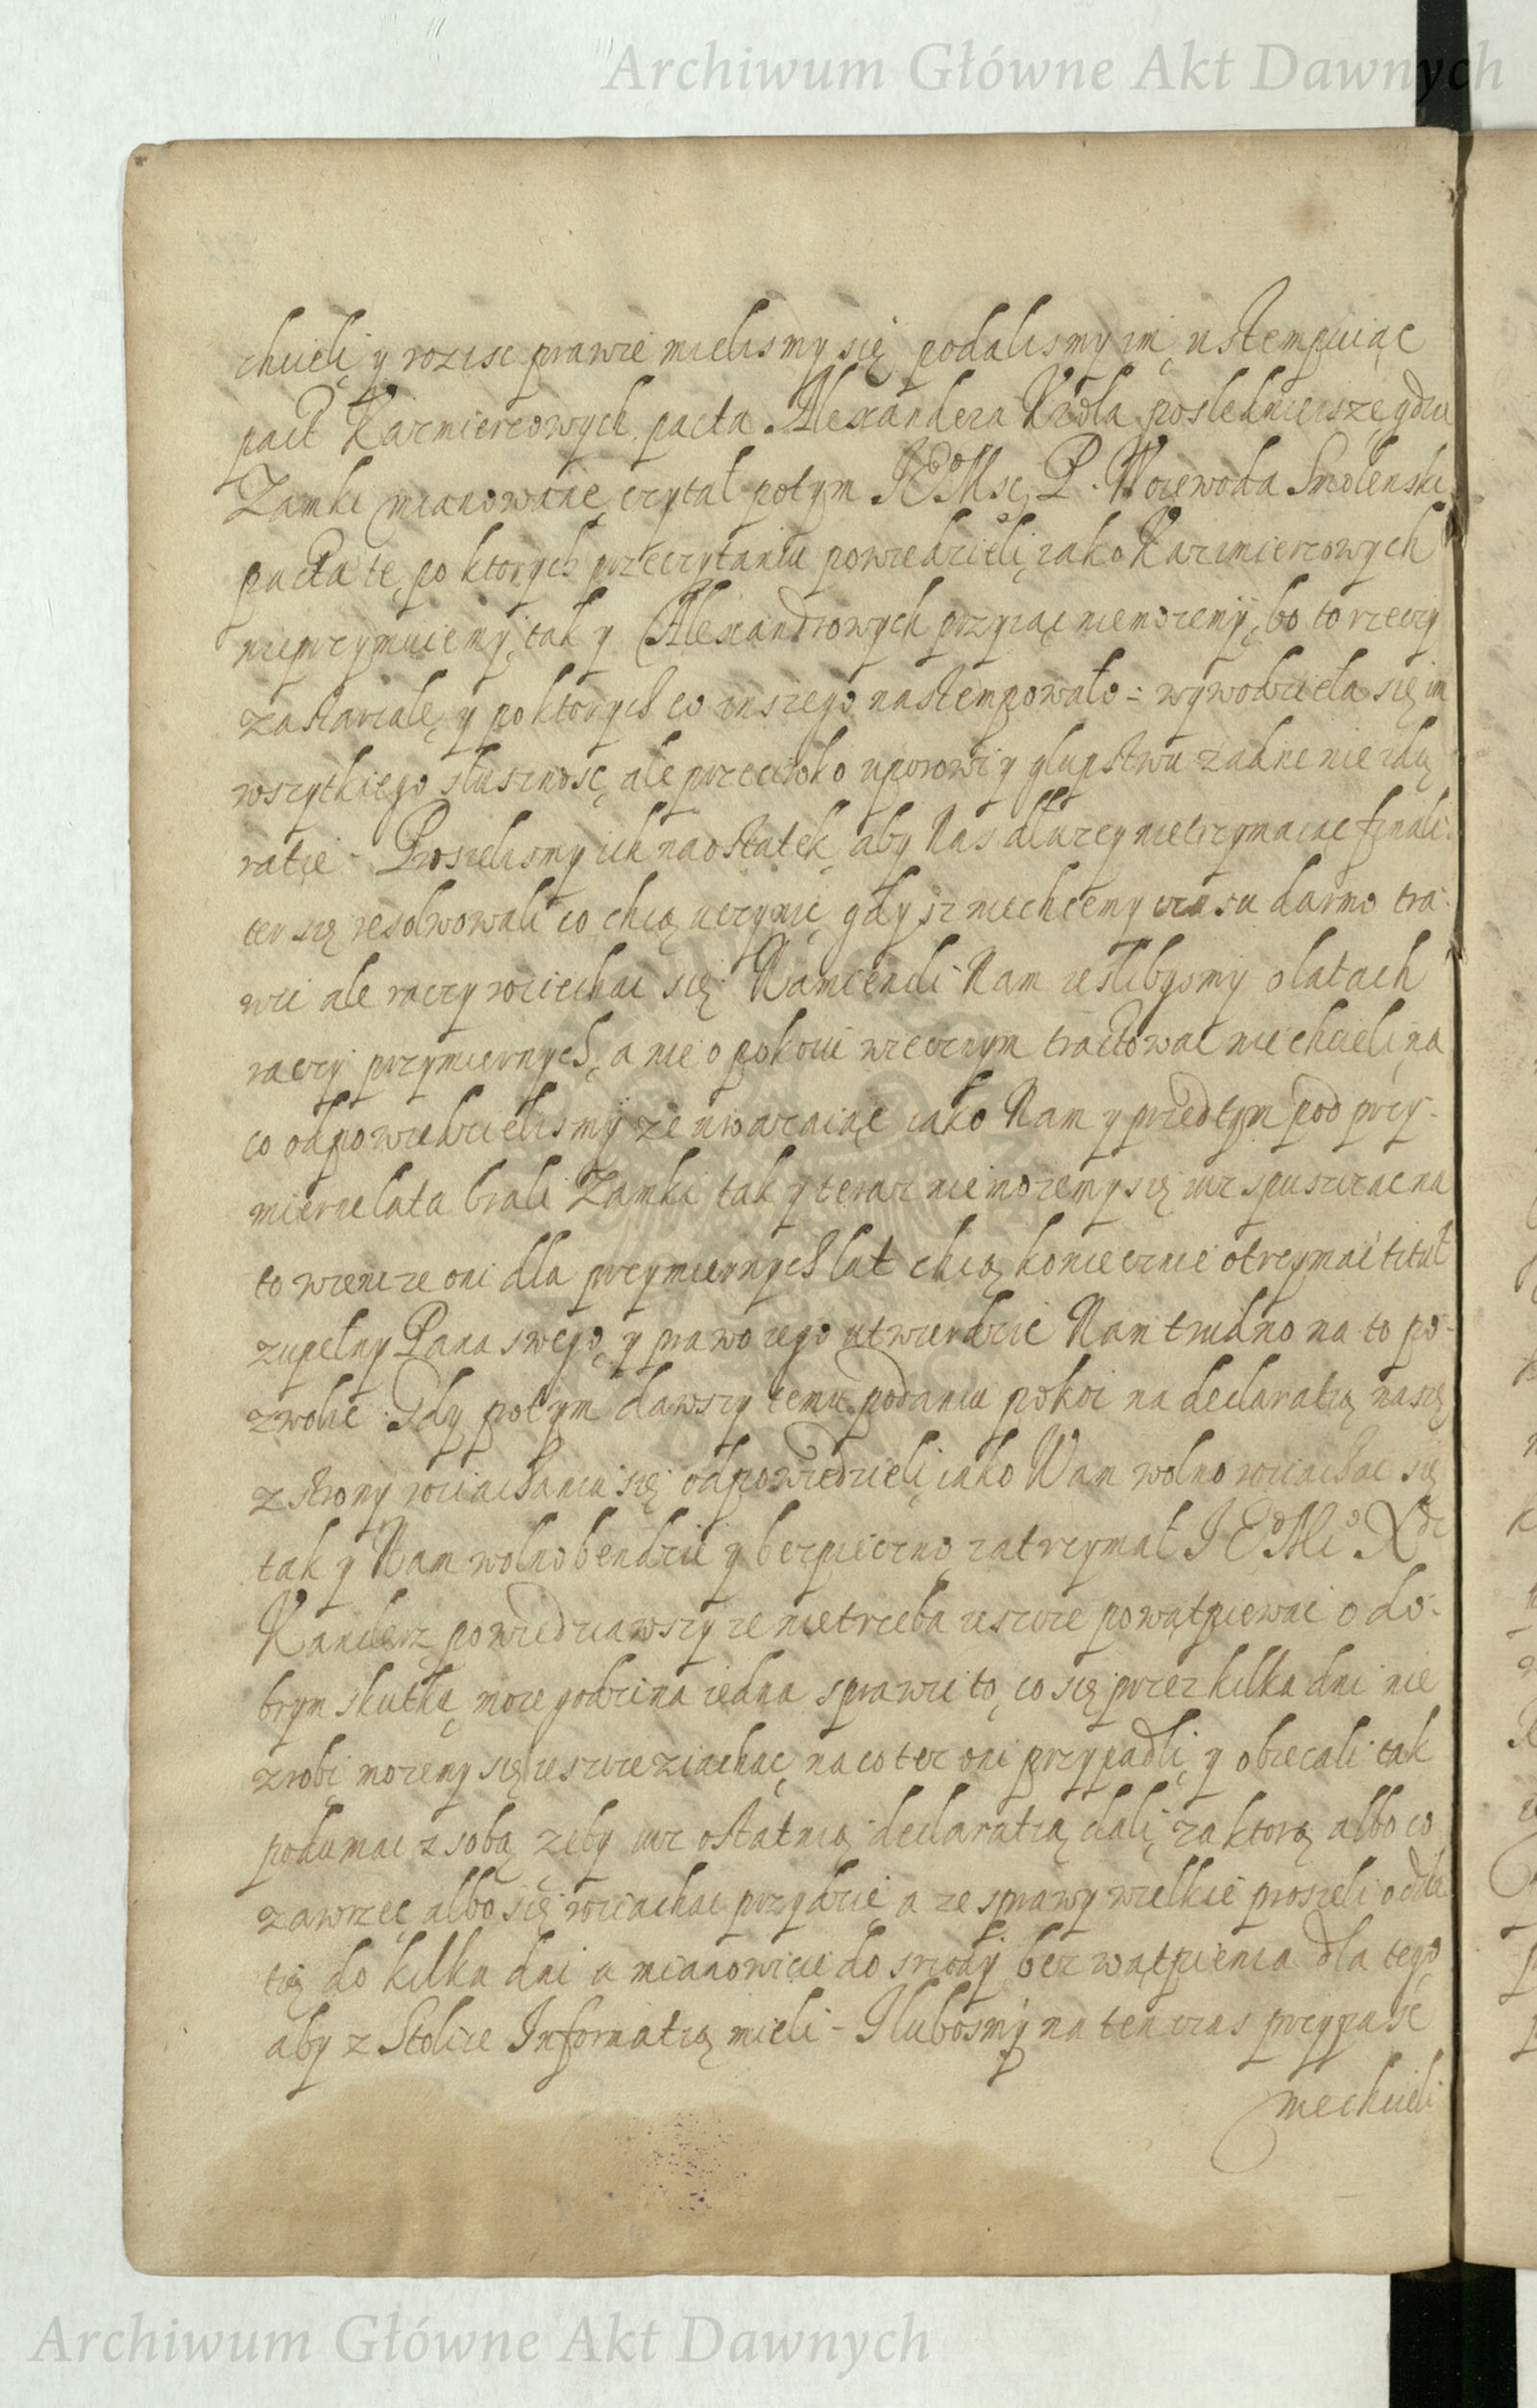 Archiwum Główne Akt Dawnych
chcieli y rozisc prawie mielismy się podalismy im, ustempuiąc
pact Kazmierzowych, pacta Alexandera Krola posledniejsze gdzie
Zamki mianowane, czytał potym JEMsc P. Woiewoda Smolenski
pacta te, po ktorych przeczytaniu powiedzieli, iako Kazimierzowych
nieprzymuiemy, tak y Alexandrowych przyiąc niemozemy, bo to rzeczy
zastarzałe, y po ktorych co inszego nastempowało - wywodzieła się im
wszytkiego słusznosc, ale przeciwko uporowi y głupstwu zadne nie idą
ratie - Prosielismy ich naostatek, aby Nas dłuzey nietrzymaiąc finali-
ter się resolwowali co chcą uczynic, gdysz niechcemy czasu darmo tra-
wic ale raczy roziechac się. Namienili Nam ieslibysmy o latach
raczy przymiernych, a nie o pokoiu wiecznym tractowac nie chcieli, na
co odpowiedzielismy ze uwazaiąc iako Nam y przedtym pod przy-
mierzelata brali Zamki tak y teraz niemozemy się iuz spuszczac na
to wiemze oni dla przymiernych lat chcą koniecznie otrzymac titul
zupełny Pana swego, y prawo iego utwierdzic Nam trudno na to po-
zwolic. Gdy potym dawszy temu podaniu pokoi na declaratią naszę
z strony roziachania się odpowiedzieli, iako Wam wolno roziachac się
tak y Nam wolno bendzie y bezpieczno, zatrzymał JEMc Xdz
Kanclerz powiedziawszy ze nietrzeba ieszcze powątpiewac o do-
brym skutku, moze godzina iedna sprawic to, co się przez kilka dni nie
zrobi mozemy się ieszcze ziachac, na co tez oni przypadli, y obiecali tak
podumac z sobą zeby iuz ostatnią declaratią dali, za ktorą albo co
zawrzec albo się roziachac przydzie, a ze sprawy wielkie prosieli odkła
tię do kilka dni a mianowicie do srzody bez wątpienia dla tego,
aby z Stolice Informatią mieli - I lubosmy na ten czas przypasc
niechcieli
Archiwum Główne Akt Dawnych